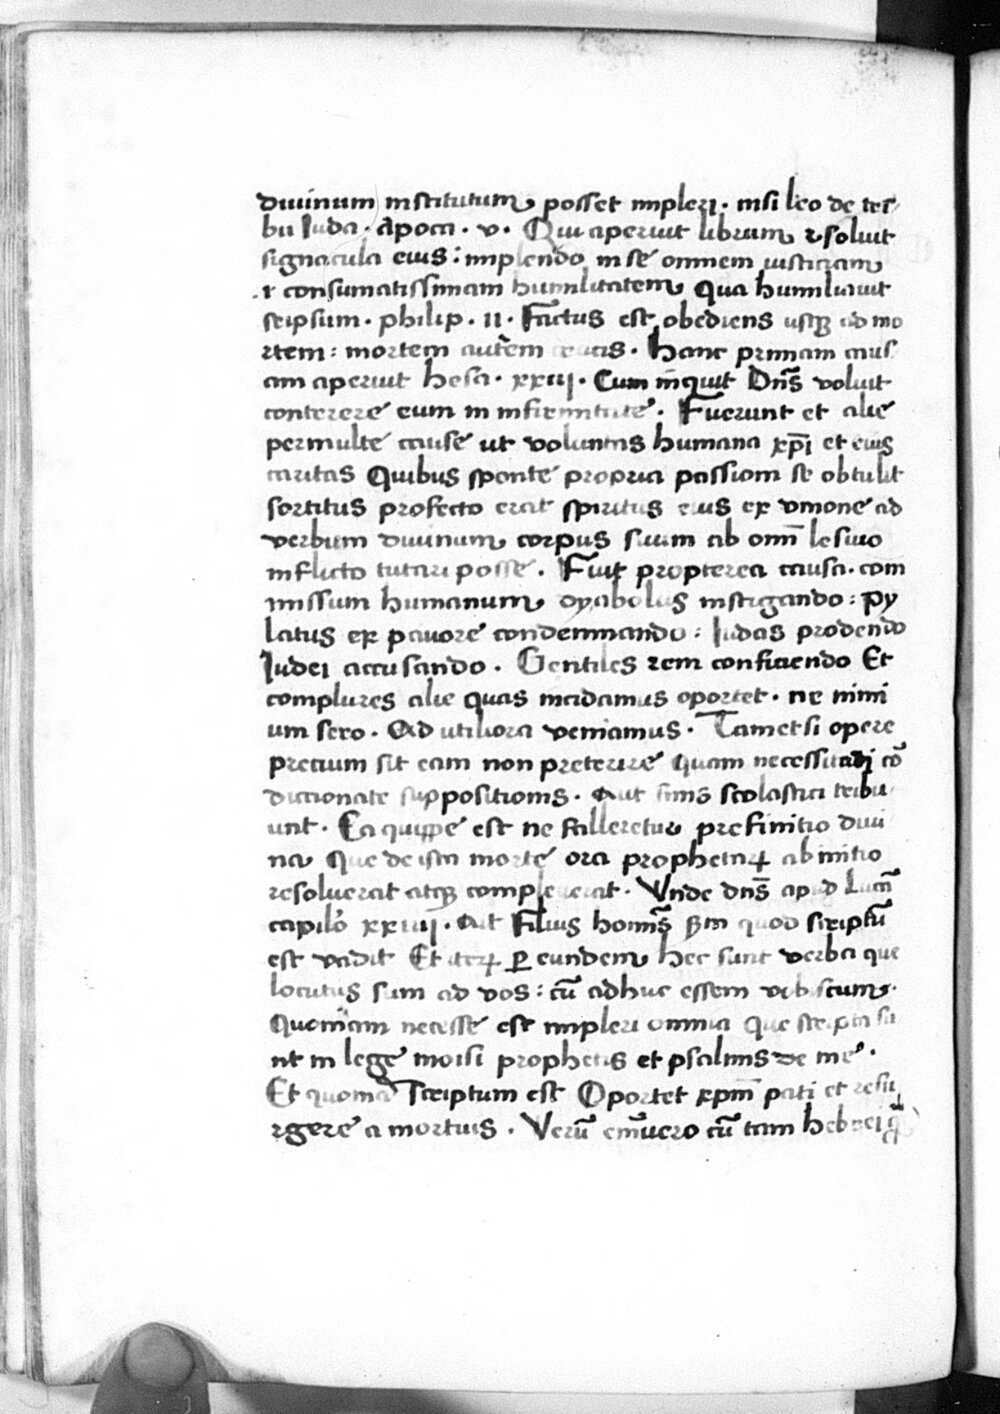 diuinum institutum posset impleri. nisi leo de tri
bu Iuda. Apoca. v. Qui aperuit librum et soluit
signacula eius: implendo in se omnem iusticiam
et consumatissimam humilitatem qua humiliauit
seipsum. philip. II. Factus est obediens usqꝫ ad mo
rtem: mortem autem crucis. hanc primam caus
am aperuit hesa. xxiij. Cum inquit Dn̄s voluit
conterere eum in infirmitate. Fuerunt et alie
permulte cause ut voluntas humana xp̄i et eius
caritas Quibus sponte propria passioni se obtulit
sortitus profecto erat spiritus eius ex vnione ad
verbum diuinum corpus suum ab om̄i lesiuo
inflicto tutari posse. Fuit propterea causa. com
missum humanum dyabolus instigando: Py
latus ex pauore condemnando: Iudas prodendo
Iudei accusando. Gentiles rem conficiendo Et
complures alie quas incidamus oportet. ne nimi
um sero. Ad utiliora veniamus. Tametsi opere
precium sit eam non preterire quam necessitati cō
dicionate suppositionis. Aut finis scolastici tribu
unt. Ea quippe est ne falleretur prefinitio diui
na que de ista morte ora prophetaꝝ ab initio
resoluerat atqꝫ compleuerat. Vnde dn̄s apud Lucā
capilo xxiiij. Ait Filius homīs sm quod scriptū
est vadit Et iteꝝ ꝑ eundem hec sunt verba que
locutus sum ad vos: cū adhuc essem vobiscum.
Quoniam necesse est impleri omnia que scripta su
nt in lege moisi prophetis et psalmis de me.
Et quoniā Scriptum est Oportet xpm̄ pati et resu
rgere a mortuis. Verū em̄uero cū tam hebrei q̄